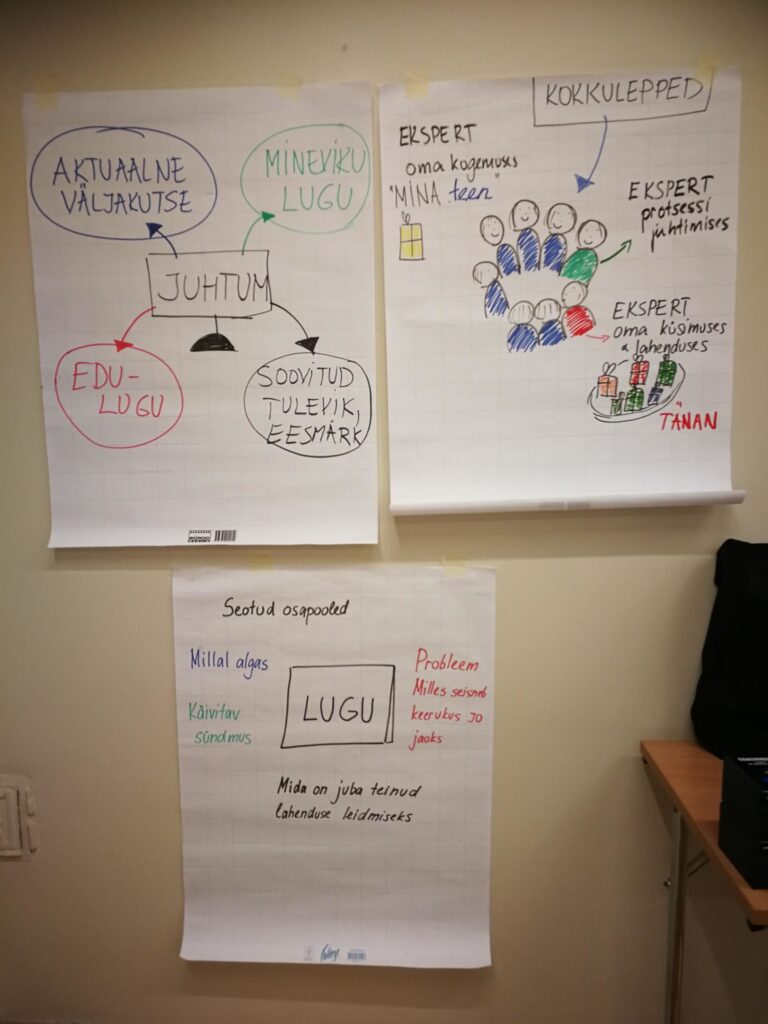 AKTUAALNE
VÄLJAKUTSE
MINEVIKU
LUGU
JUHTUM
EDU-
LUGU
SOOVITUD
TULEVIK,
EESMÄRK
KOKKULEPPED
EKSPERT
oma kogemuses
"MINA teen"
EKSPERT
protsessi
juhtimises
EKSPERT
oma küsimuses
& lahenduses
TÄNAN
Seotud osapooled
Millal algas
Käivitav
sündmus
LUGU
Probleem
Milles seisneb
keerukus JO
jaoks
Mida on juba teinud
lahenduse leidmiseks